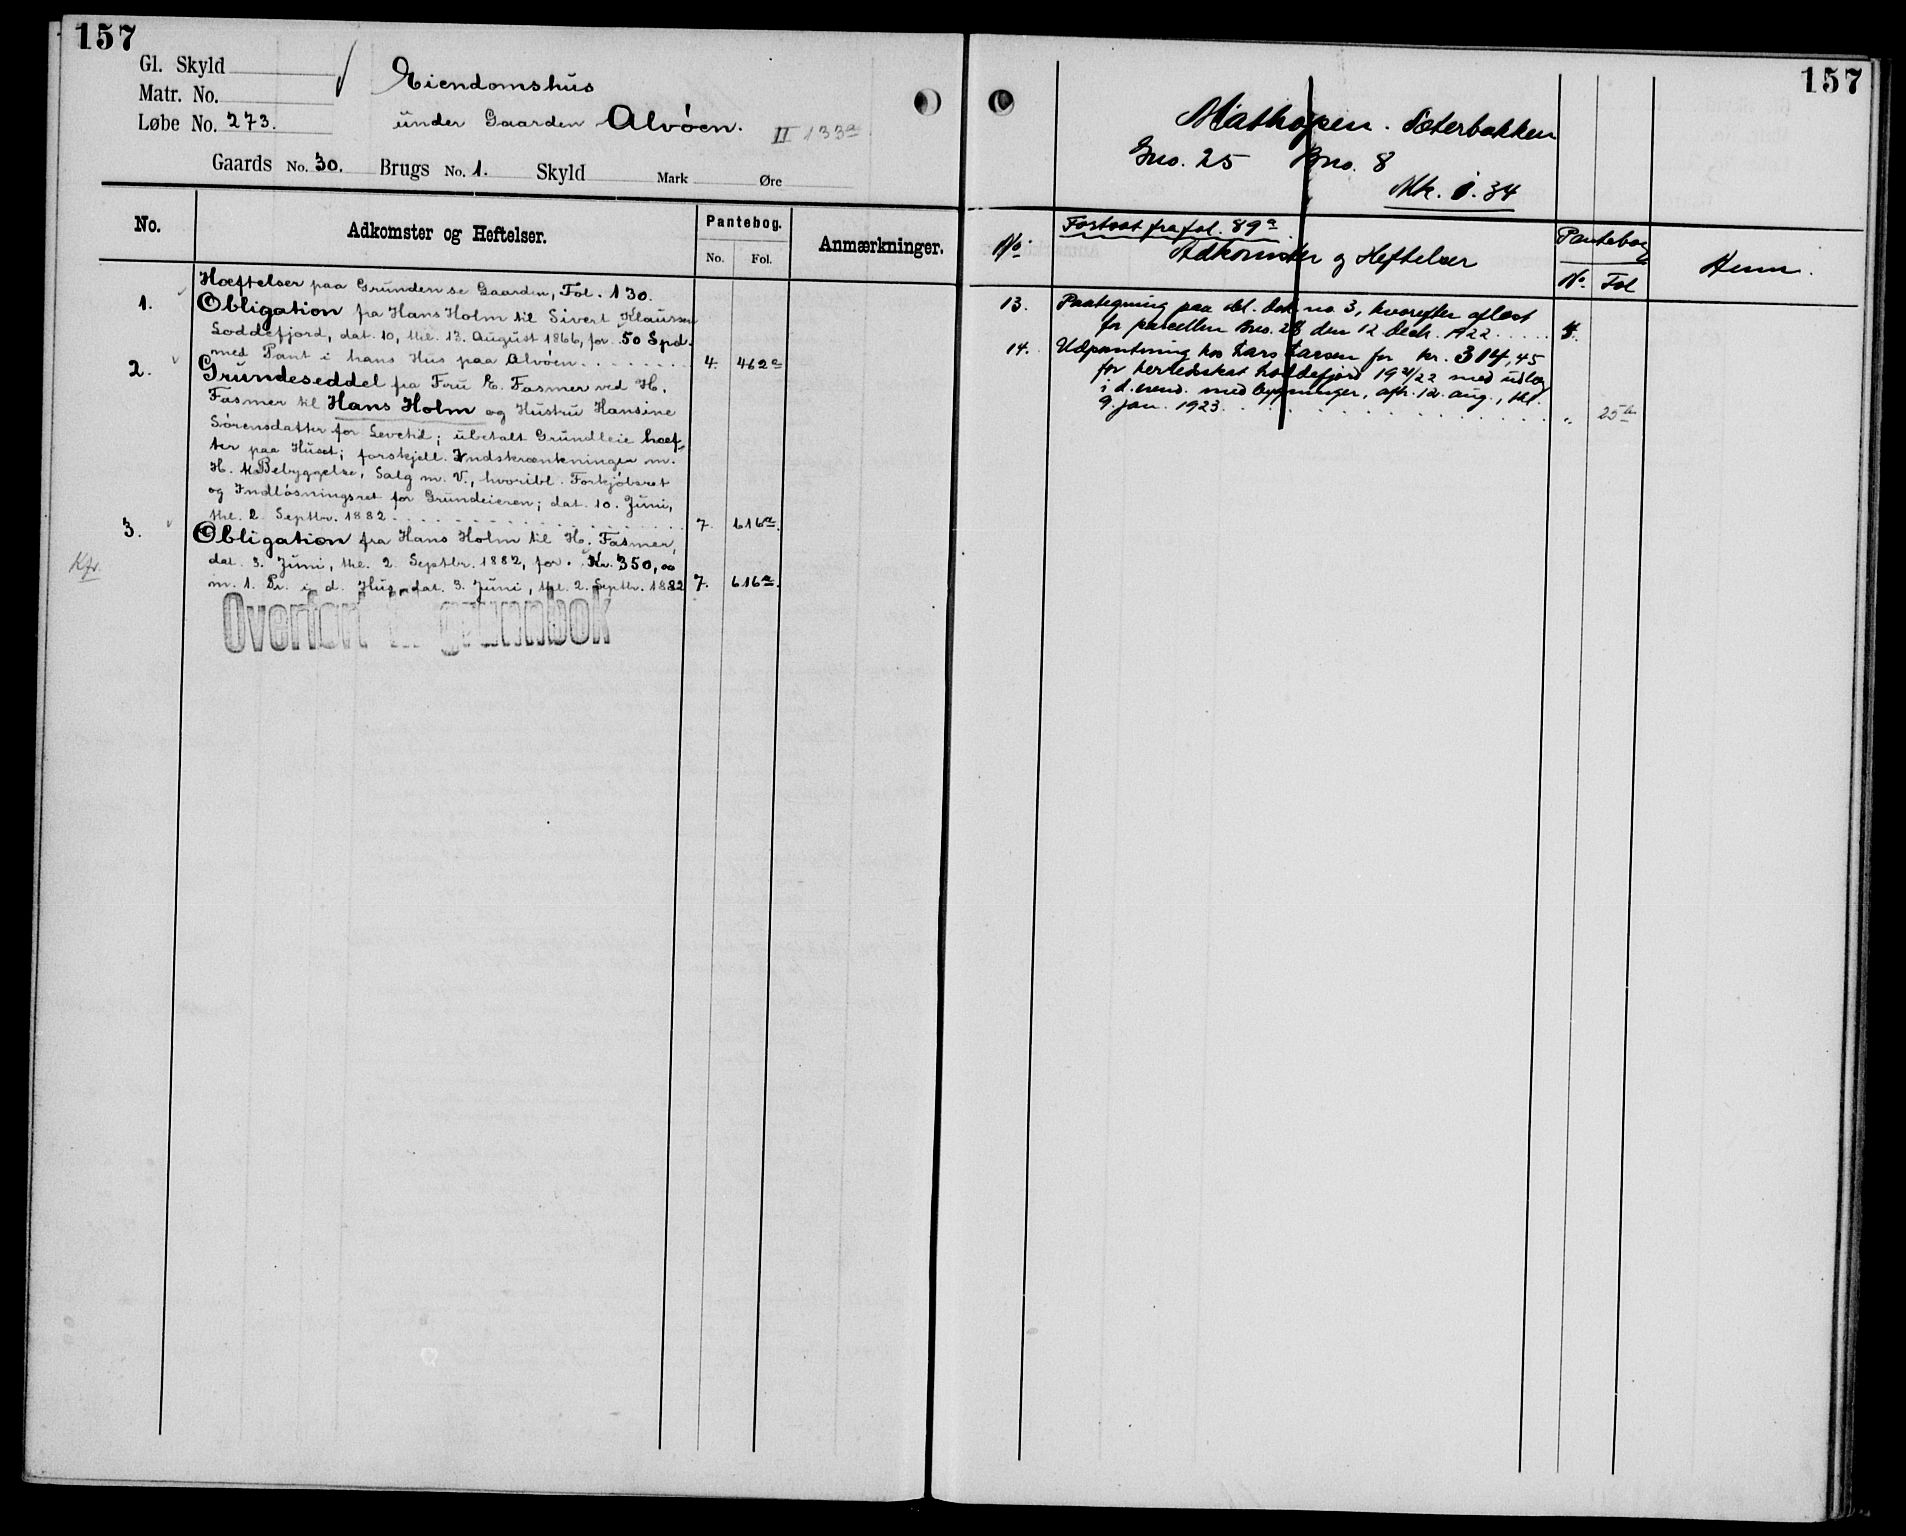 157
Gl. Skyld
Matr. No.
Løbe No. 273.
Eiendomshus
under Gaarden Alvöen.
II 133a
Gaards No. 30. Brugs No. 1. Skyld Mark Øre
No. Adkomster og Heftelser. Pantebog. No. Fol. Anmærkninger.
Hæftelser paa Grunden se Gaarden, Fol. 130.
1. Obligation fra Hans Holm til Sivert Klaussen
Loddefjord, dat. 10, thl. 13. August 1866, for 50 Spd.
med Pant i hans Hus paa Alvöen. 4. 462a
2. Grundeseddel fra Fru E. Fasmer ved H.
Fasmer til Hans Holm og Hustru Hansine
Sörensdatter for Levetid; ubetalt Grundleie hæf-
ter paa Huset; forskjell. Indskrænkninger m.
H. t. Bebyggelse, Salg m. V., hvoribl. Forkjöbsret
og Indlösningsret for Grundeieren; dat. 10. Juni,
thl. 2. Septbr. 1882. 7. 616a.
3. Obligation fra Hans Holm til H. Fasmer,
dat. 3. Juni, thl. 2. Septbr. 1882, for Kr. 350,00
m. 1. Pr. i d. Hus, dat. 3. Juni, thl. 2. Septbr. 1882 7. 616a.
Kfr.
Overført til grunnbok
157
Mathopen. Sæterbakken
Gno. 25 Bno. 8
Mk. 0.34
Fortsat fra fol. 89a
No. Adkomster og Heftelser Pantebog No. Fol Anm.
13. Paategning paa obl. dok. no. 3, hvorefter aflæst
for parcellen Bno. 28 den 12 decb. 1922.
14. Udpantning hos Lars Larsen for kr. 314,45
for herredsskat Loddefjord 1921/22 med udlæg
i d. eiend. med bygninger, afh. 12. aug., thl.
9. jan. 1923. " 25b